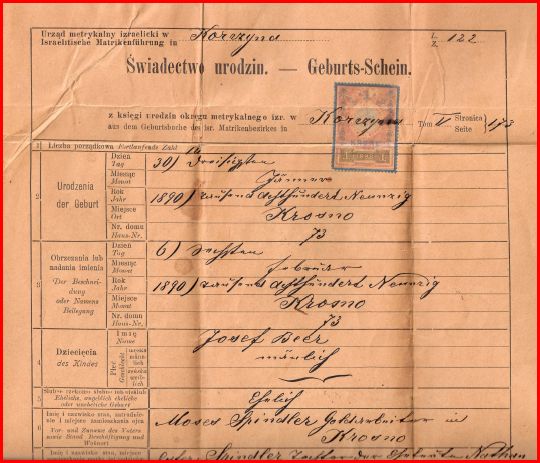 Urząd metrykalny izraelicki w
Israelitische Matrikenführung in Korczyna L/Z 122
Świadectwo urodzin. — Geburts-Schein.
z księgi urodzin okręgu metrykalnego izr. w
aus dem Geburtsbuche des isr. Matrikenbezirkes in Korczyna Tom II Stronica Seite 173
1 Liczba porządkowa Fortlaufende Zahl
2 Urodzenia der Geburt
Dzień Tag 30) Dreisigsten
Miesiąc Monat Jänner
Rok Jahr 1890) tausend achthundert Neunzig
Miejsce Ort Krosno
Nr. domu Haus-Nr. 73
3 Obrzezania lub nadania imienia
Der Beschneidung oder Namens Beilegung
Dzień Tag 6) Sechsten
Miesiąc Monat Februar
Rok Jahr 1890) tausend achthundert Neunzig
Miejsce Monat Krosno
Nr. domu Haus-Nr. 73
4 Dziecięcia des Kindes
Imię Name Josef Beer
Płeć Geschlecht męzka männlich żeńska weiblich mänlich
5 Ślubne rzekomo ślubne lub nieślubne
Eheliche, angeblich eheliche oder uneheliche Geburt Ehelich
6 Imię i nazwisko stan, zatrudnienie i miejsce zamieszkania ojca
Vor- und Zuname des Vaters sowie Stand Beschäftigung und Wohnort
Moses Spindler Goldarbeiter in
Krosno
Imię i nazwisko stan,
Ester Spindler Tochter der Eheleute Nathan